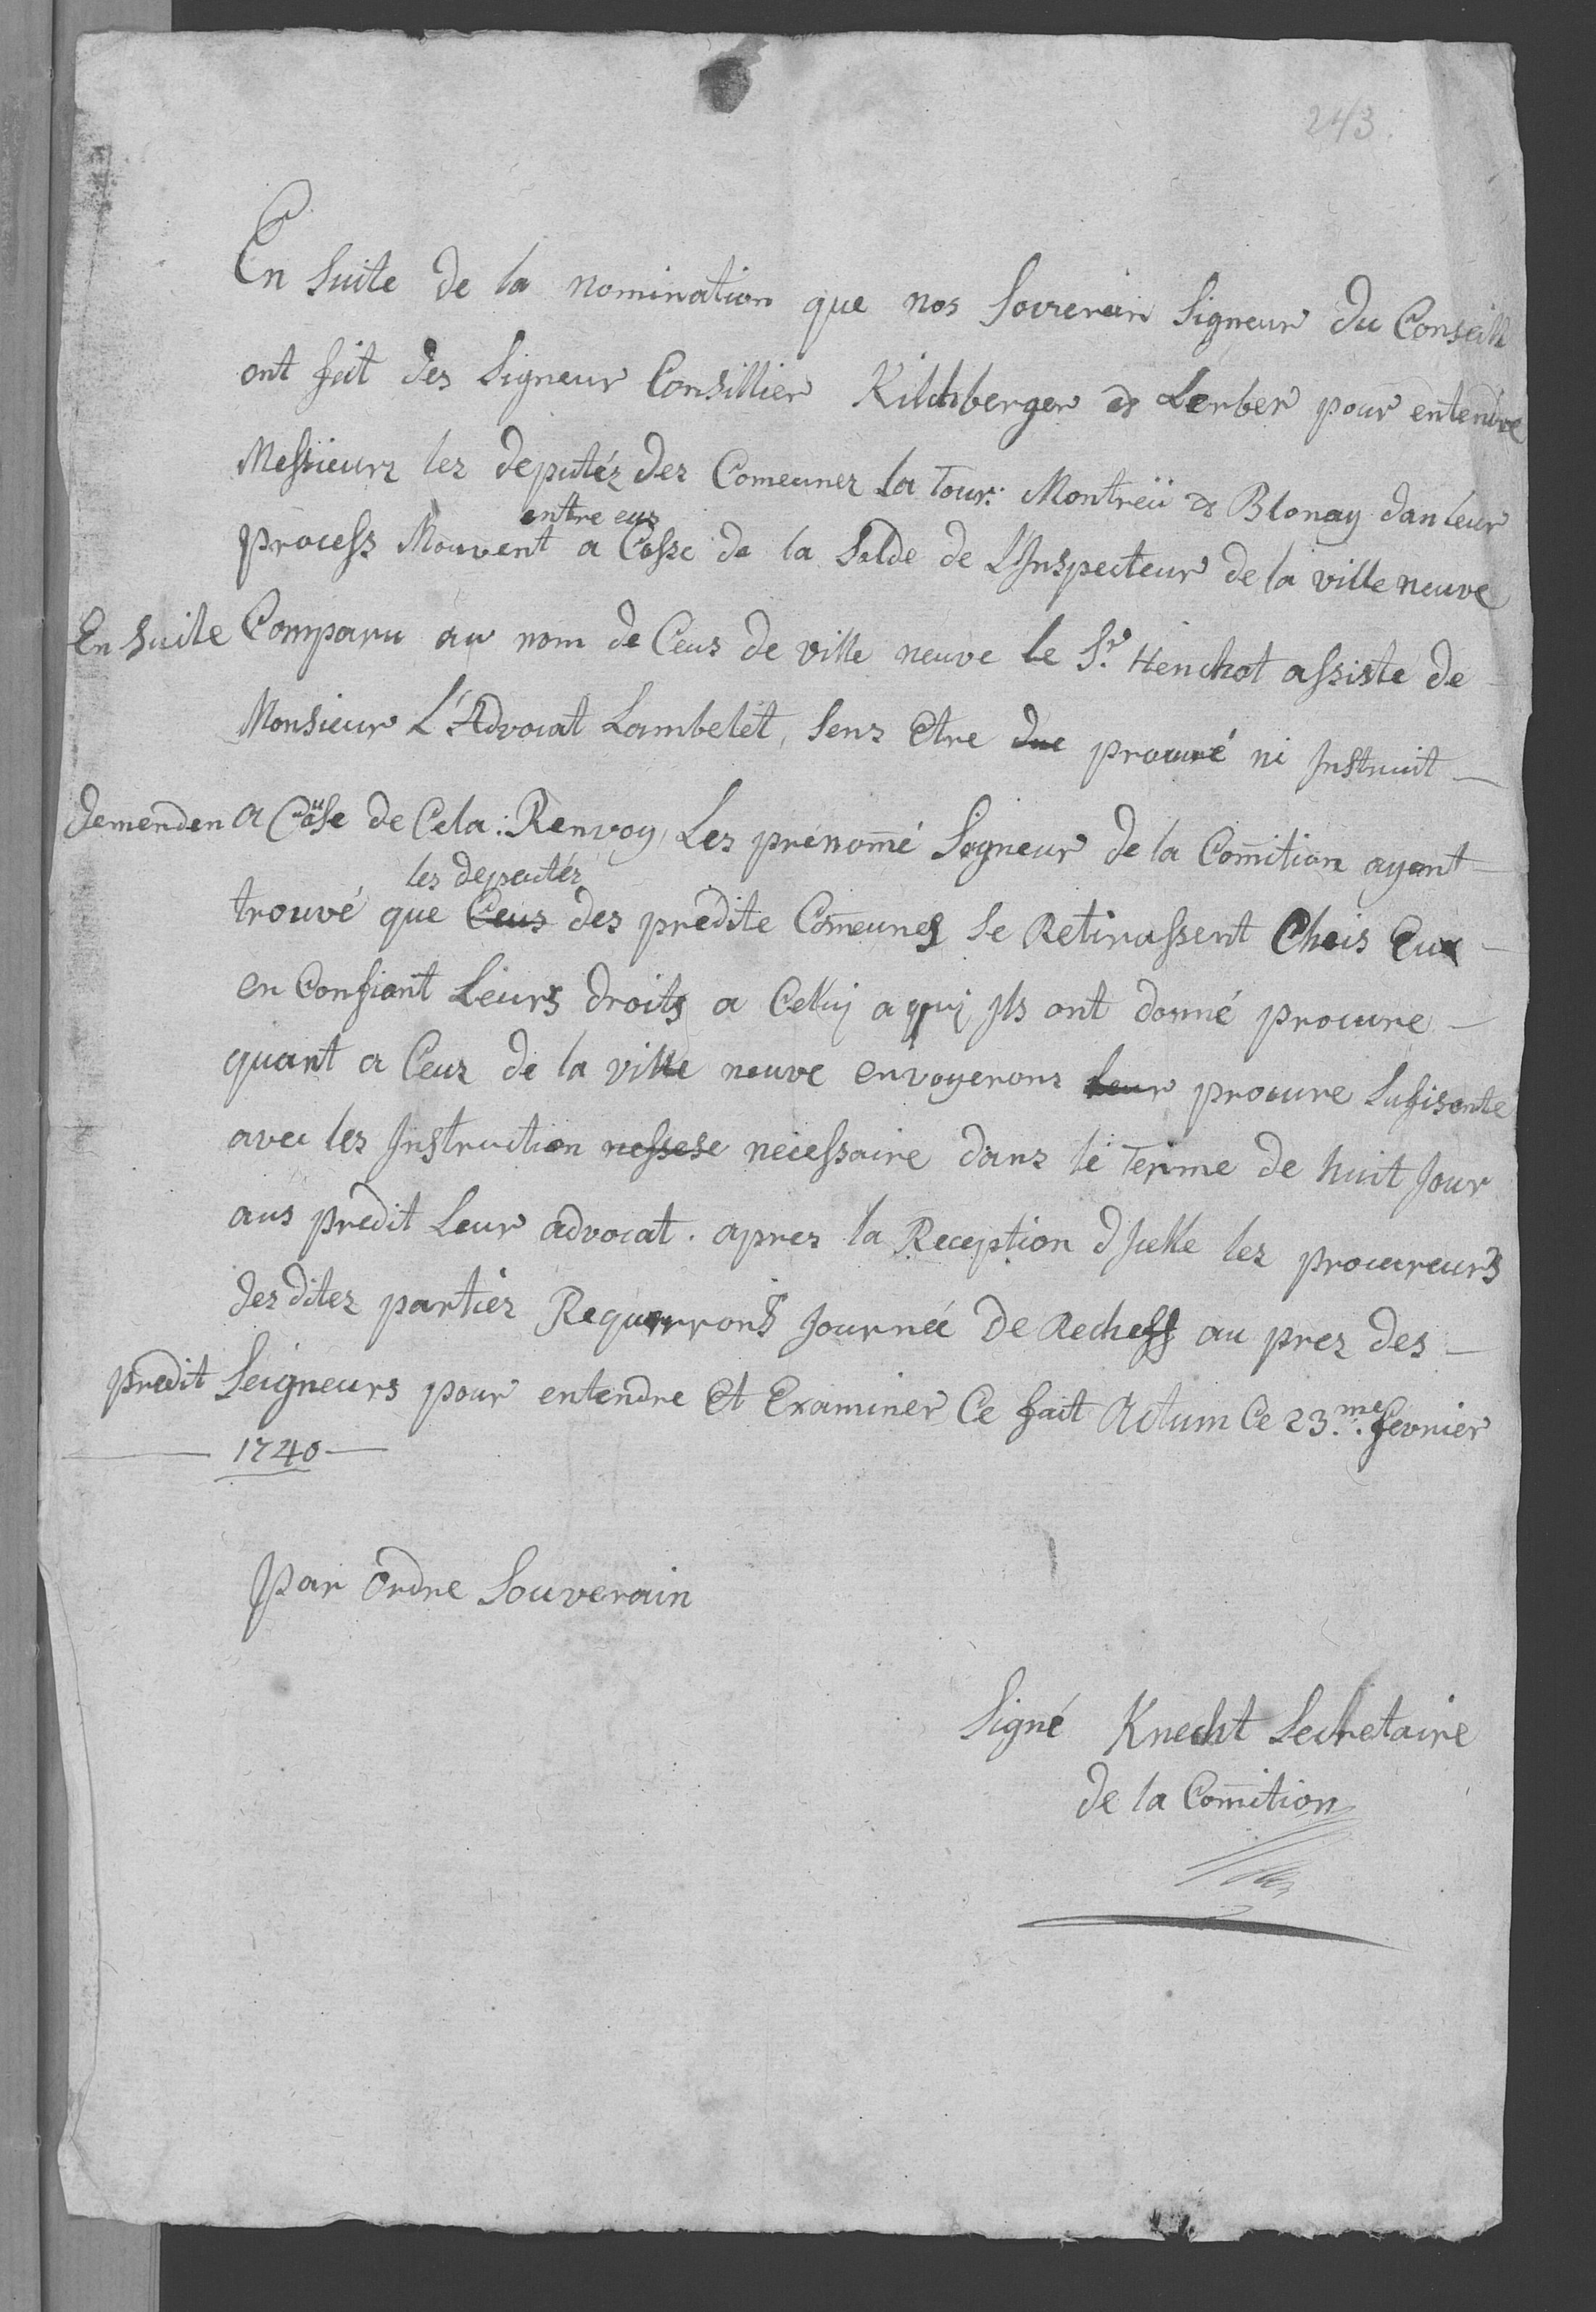 243
En Suite de la nomination que nos Soverein Signeur du Conseill
ont fait des Signeur Consillier Kilchberger & Lerber pour entendre
Messieurs les deputéz des Comeunes la Tour: Montreü & Blonay dan leur
entre eus
process Mouvent a Cosse de la Solde de L'Inspecteur de la ville neuve
En Suite Comparu au nom de Ceus de ville neuve le Sr. Henchot assisté de
Monsieur L'Advocat Lambelet, Sens Etre due procuré ni Instruit
demenden a Cause de Cela: Renvoy, Les prénom̄é Signeur de la Com̄ition ayent
les deputéz
trouvé que Ceus des predite Com̄eunes Se Retirassent Cheis Eux
en Confiant Leurs droits a Celuy a quj Ils ont donné procure
quant a Ceux de la ville neuve envoyerons leur procure Sufisente
avec les Instruction nessese necessaire dans le Terme de huit Jour
aus predit Leur advocat. apres la Reception d'Icelle les procureurs
des dites parties Requerrons Journée de Recheff au prez des
predit Seigneurs pour entendre Et Examiner Ce fait Actum Ce 23.me fevrier
1740
par Ordre Souverain
Signé Knecht Secretaire
de la Com̄ition